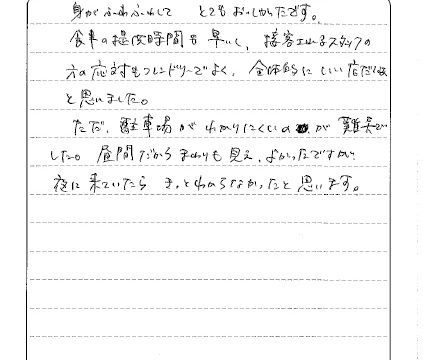 身がふわふわして とてもおいしかったです。
食事の提供時間も早いし、接客スタッフの
方の応対もフレンドリーでよく、全体的にいい店だな
と思いました。
ただ、駐車場がわかりにくいのが難点で
した。昼間だからまわりも見え、よかったですが
夜に来ていたら きっとわからなかったと思います。